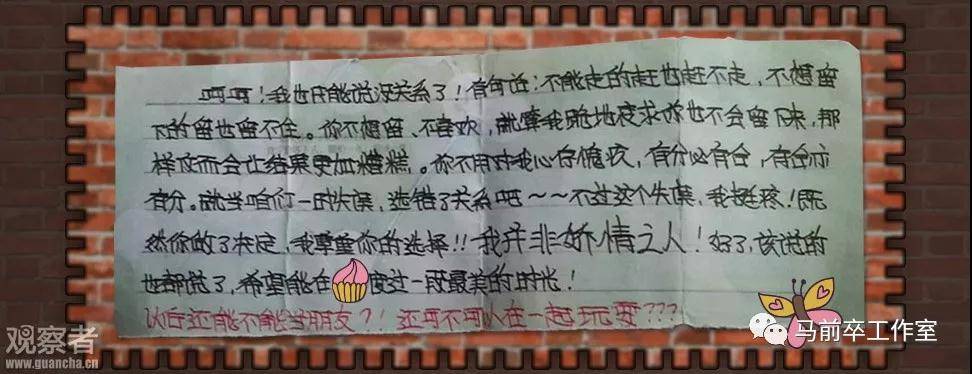 呵呵！我也只能说没关系了！有句话：不能走的赶也赶不走，不想留
下的留也留不住。你不想留、不喜欢，就算我跪地哀求你也不会留下来，那
样反而会让结果更加糟糕。你不用对我心存愧疚，有分必有合，有合亦
有分。就当咱们一时失误，选错了关系吧～～不过这个失误，我挺疼！既
然你做了决定，我尊重你的选择！！我并非矫情之人！好了，该说的
也都说了，希望能在 度过一段最美的时光！
以后还能不能当朋友？！还可不可以在一起玩耍？？？
观察者
www.guancha.cn
马前卒工作室